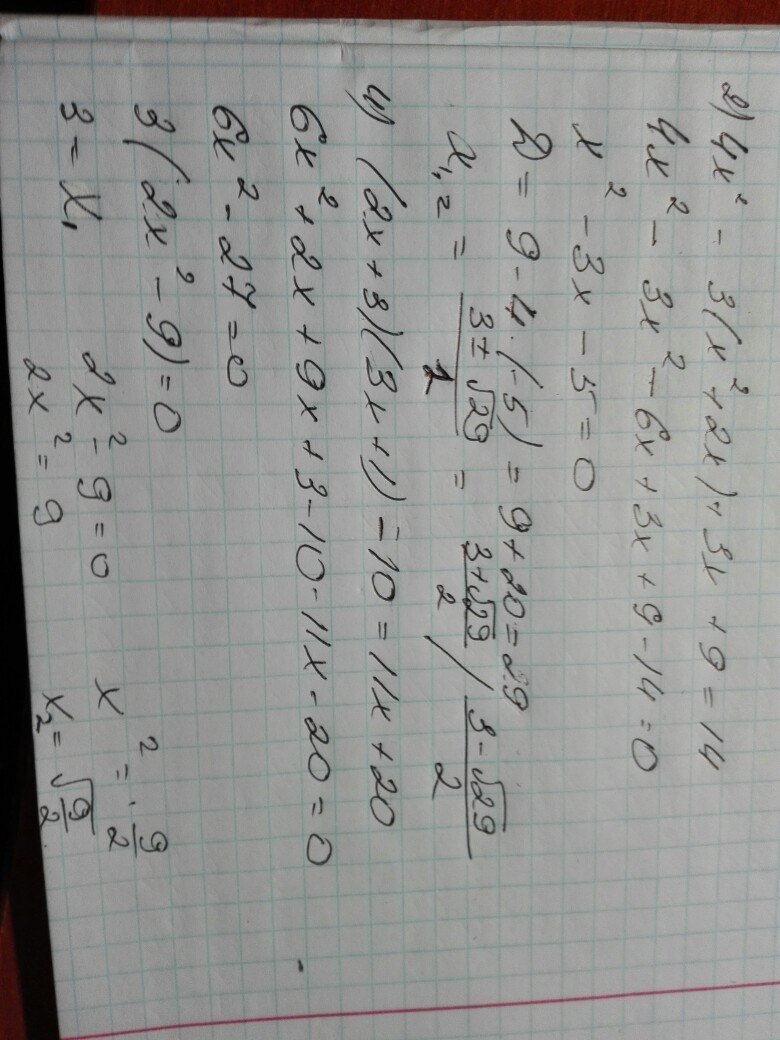 2) 4x² - 3(x² + 2x) + 3x + 9 = 14
4x² - 3x² - 6x + 3x + 9 - 14 = 0
x² - 3x - 5 = 0
D = 9 - 4·(-5) = 9 + 20 = 29
x₁,₂ = (3 ± √29)/2 = (3+√29)/2 / (3-√29)/2
4) (2x + 3)(3x + 1) = 10 = 11x + 20
6x² + 2x + 9x + 3 - 10 - 11x - 20 = 0
6x² - 27 = 0
3(2x² - 9) = 0
3 = x₁ 2x² - 9 = 0 x² = 9/2
2x² = 9 x₂ = √(9/2)